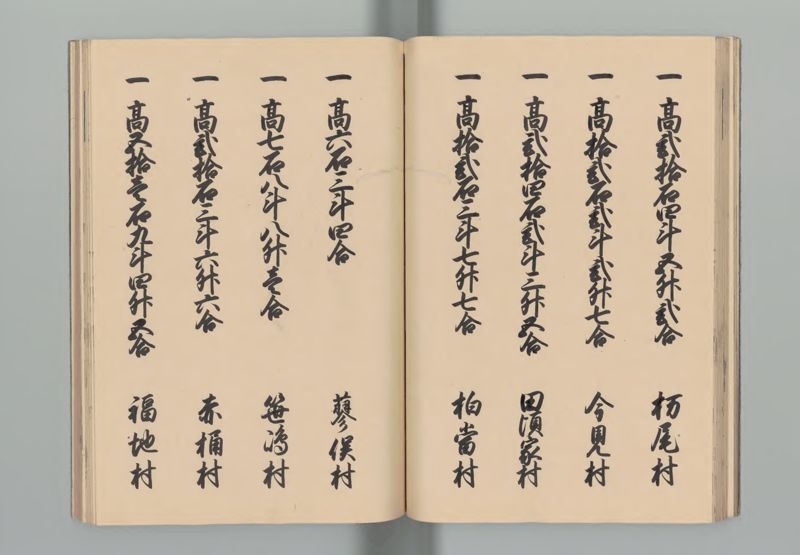 一 高弐拾石四斗五升弐合 栃尾村
一 高拾弐石弐斗弐升七合 今見村
一 高弐拾四石弐斗三升五合 田頃家村
一 高拾弐石三斗七升七合 柏當村
一 高六石三斗四合 蓼俣村
一 高七石八斗八升壱合 笹嶋村
一 高弐拾石三斗六升六合 赤桶村
一 高五拾壱石九斗四升五合 福地村